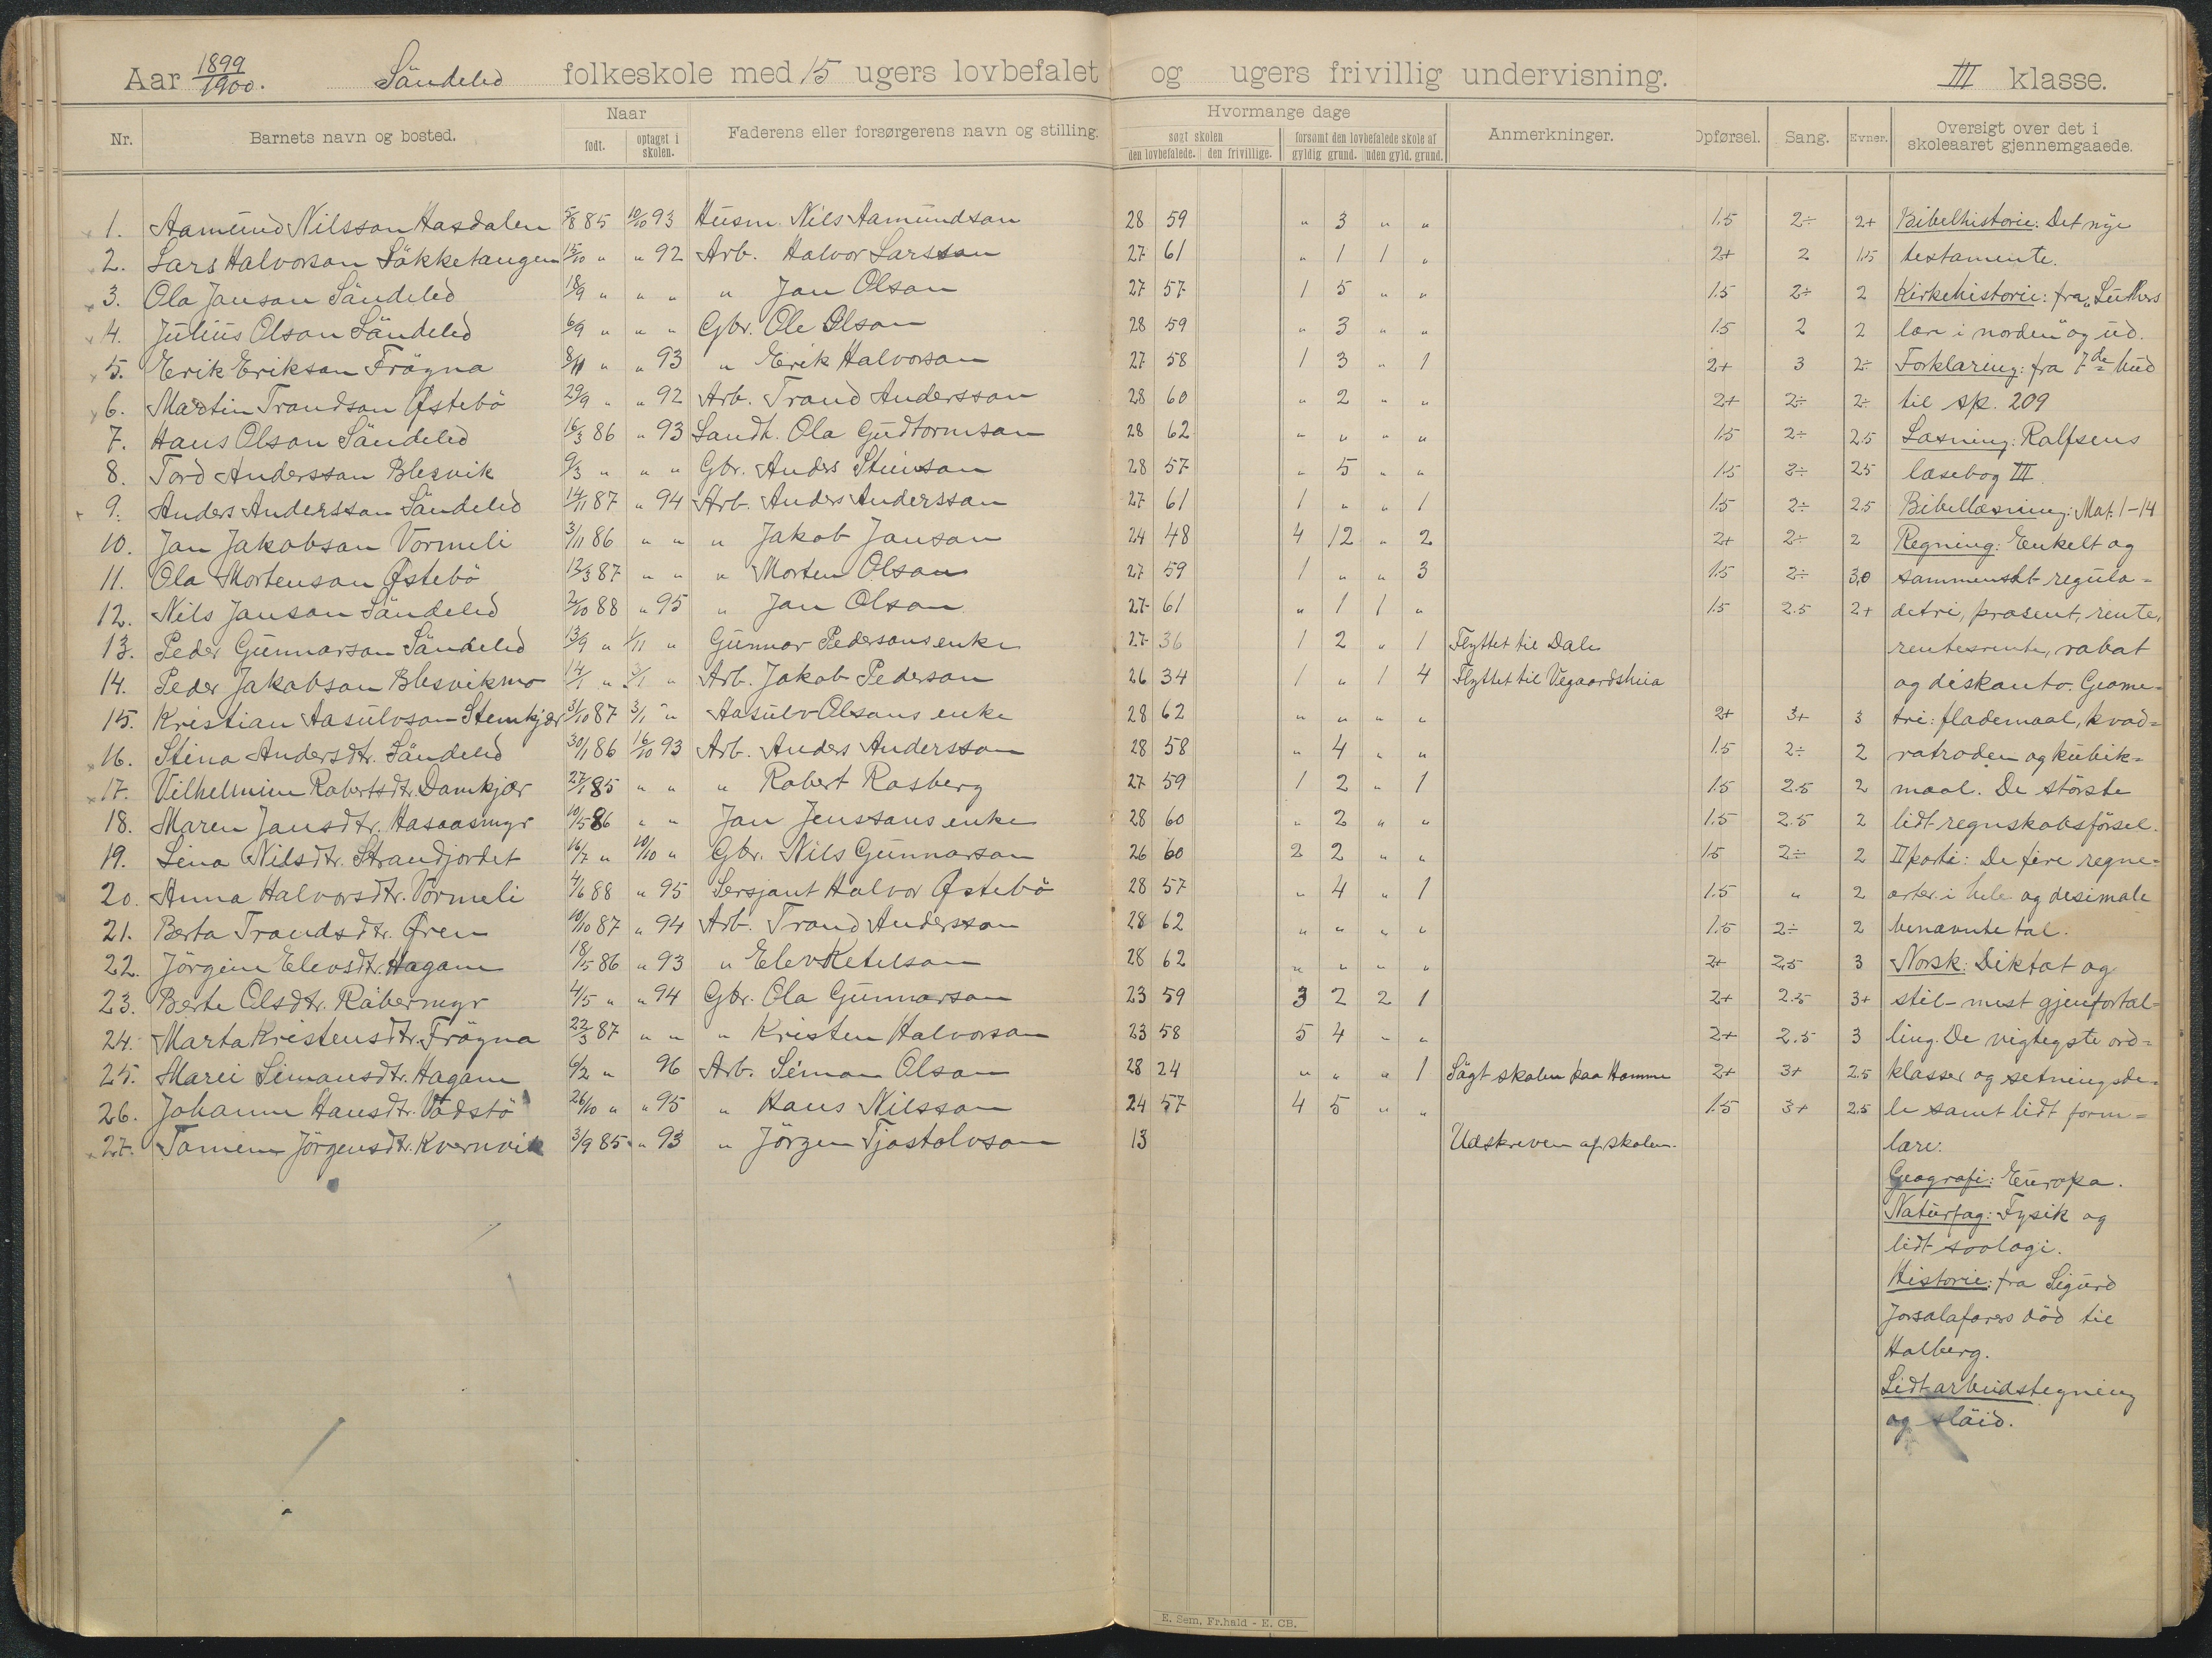 Aar 1899/1900. Sändeled folkeskole med 15 ugers lovbefalet og ugers frivillig undervisning. III klasse.
Nr. Barnets navn og bosted. Naar født. optaget i skolen. Faderens eller forsørgerens navn og stilling. Hvormange dage søgt skolen den lovbefalede. den frivillige. forsømt den lovbefalede skole af gyldig grund. uden gyld. grund. Anmerkninger. Opførsel. Sang. Evner. Oversigt over det i skoleaaret gjennemgaaede.
1. Aamund Nilsson Hasdalen 5/8 85 10/10 93 Husm. Nils Aamundson 28 59 " 3 " " 1.5 2÷ 2+ Bibelhistorie: Det nye
2. Lars Halvorson Säkketangen 15/10 " " 92 Arb. Halvor Larsson 27 61 " 1 1 " 2+ 2 1.5 testamente.
3. Ola Janson Sändeled 18/9 " " " " Jan Olson 27 57 1 5 " " 1.5 2÷ 2 Kirkehistorie: fra „Luthers
4. Julius Olson Sändeled 6/9 " " " Gbr. Ole Olson 28 59 " 3 " " 1.5 2 2 lære i norden" og ud.
5. Erik Erikson Frögna 8/11 " " 93 " Erik Halvorson 27 58 1 3 " 1 2+ 3 2÷ Forklaring: fra 7de bud
6. Martin Trondson Østebö 29/9 " " 92 Arb. Trond Andersson 28 60 " 2 " " 2+ 2÷ 2÷ til sp. 209
7. Hans Olson Sändeled 16/3 86 " 93 Landh. Ola Gudtormson 28 62 " " " " 1.5 2÷ 2.5 Læsning: Rolfsens
8. Tord Andersson Blesvik 9/3 " " " Gbr. Anders Steinson 28 57 " 5 " " 1.5 2÷ 2.5 læsebog III.
9. Anders Andersson Sändeled 14/11 87 " 94 Arb. Anders Andersson 27 61 1 " " 1 1.5 2÷ 2.5 Bibellæsning: Mat. 1-14
10. Jan Jakobson Vormeli 3/11 86 " " " Jakob Janson 24 48 4 12 " 2 2+ 2÷ 2 Regning: Enkelt og
11. Ola Mortenson Østebö 12/3 87 " " " Morten Olson 27 59 1 " " 3 1.5 2÷ 3,0 sammensat regula=
12. Nils Janson Sändeled 2/10 88 " 95 " Jan Olson 27 61 " 1 1 " 1.5 2.5 2+ detri, prosent, rente,
13. Peder Gunnarson Sändeled 13/9 " 1/11 " Gunnar Pedersons enke 27 36 1 2 " 1 Flyttet til Dale rentesrente, rabat
14. Peder Jakobson Blesvikmo 14/1 " 3/1 " Arb. Jakob Pederson 26 34 1 " 1 4 Flyttet til Vegaardsheia og diskonto. Geome-
15. Kristian Aasulvson Stemkjær 31/10 87 3/1 " Aasulv Olsons enke 28 62 " " " " 2+ 3+ 3 tri: flademaal, kvad=
16. Stina Andersdtr. Sändeled 30/1 86 16/10 93 Arb. Anders Andersson 28 58 " 4 " " 1.5 2÷ 2 ratroden og kubik=
17. Vilhelmine Robertsdtr. Damkjær 27/1 85 " " " Robert Rosberg 27 59 1 2 " 1 1.5 2.5 2 maal. De störste
18. Maren Jansdtr. Hasaasmyr 10/5 86 " " Jan Jenssons enke 28 60 " 2 " " 1.5 2.5 2 lidt regnskabsförsel.
19. Lina Nilsdtr. Strandjordet 16/7 " 10/10 " Gbr. Nils Gunnarson 26 60 2 2 " " 1.5 2÷ 2 II parti: De fire regne=
20. Anna Halvorsdtr. Vormeli 4/6 88 " 95 Sersjant Halvor Østebö 28 57 " 4 " 1 1.5 " 2 arter i hele og desimale
21. Berta Trondsdtr. Øren 10/10 87 " 94 Arb. Trond Andersson 28 62 " " " " 1.5 2÷ 2 benævnte tal.
22. Jörgine Elevsdtr. Hagane 18/5 86 " 93 " Elev Ketelson 28 62 " " " " 2+ 2,5 3 Norsk: Diktat og
23. Berte Olsdtr. Räbermyr 4/5 " " 94 Gbr. Ola Gunnarson 23 59 3 2 2 1 2+ 2.5 3+ stil - mest gjenfortæl=
24. Marta Kristensdtr. Frögna 22/3 87 " " " Kristen Halvorson 23 58 5 4 " " 2+ 2.5 3 ling. De vigtigste ord=
25. Marei Simonsdtr. Hagane 6/2 " 96 Arb. Simon Olson 28 24 " " " 1 Sögt skolen paa Homme 2+ 3+ 2.5 klasser og setningsde-
26. Johanne Hansdtr. Vadstö 26/10 " " 95 " Hans Nilsson 24 57 4 5 " " 1.5 3+ 2.5 le samt lidt form=
27. Tomine Jörgensdtr. Kvernvik 3/9 85 " 93 " Jörgen Tjostolvson 13 Udskreven af skolen. lære.
Geografi: Europa.
Naturfag: Fysik og
lidt soologi.
Historie: fra Sigurd
Jorsalafarers död til
Holberg.
Lidt arbeidstegning
og slöid.
E. Sem, Fr.hald - E. CB.